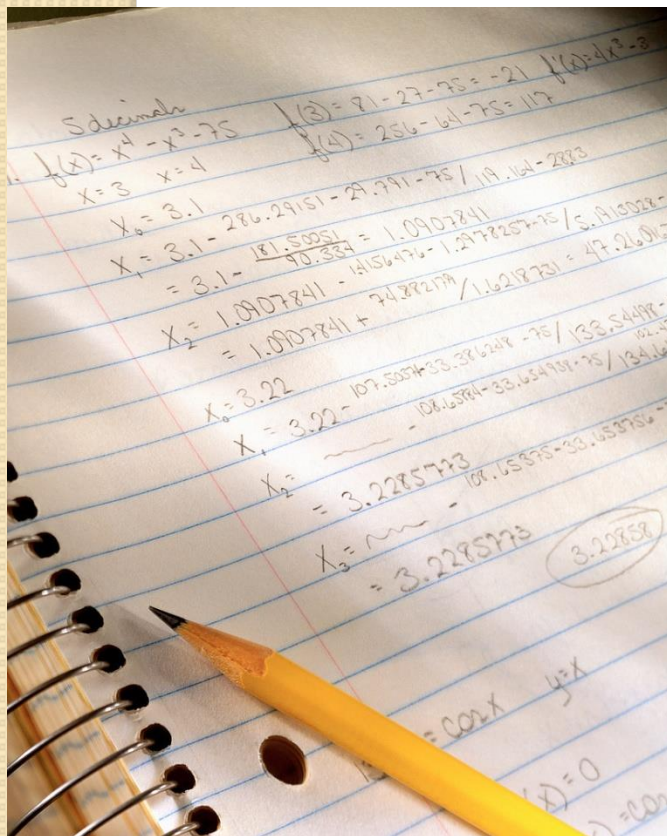 5 decimals
1. f(x) = x⁴ - x³ - 75 f(3) = 81 - 27 - 75 = -21 f'(x) = 4x³ - 3
x = 3 x = 4 f(4) = 256 - 64 - 75 = 117
X₀ = 3.1
X₁ = 3.1 - 286.29151 - 29.791 - 75 / 119.164 - 28.83
= 3.1 - 181.50051 / 90.334 = 1.0907841
X₂ = 1.0907841 - 1.4156476 - 1.2978257 - 75 / 5.1915028 -
= 1.0907841 + 74.882179 / 1.6218731 = 47.260
X₀ = 3.22
X₁ = 3.22 - 107.5037 - 33.386248 - 75 / 133.54498 -
X₂ = - 108.65884 - 33.654958 - 75 / 134.6
= 3.2285773
X₃ = - 108.65375 - 33.653756 -
= 3.2285773 3.22858
= cos x y = x
(x) = 0
) = cos